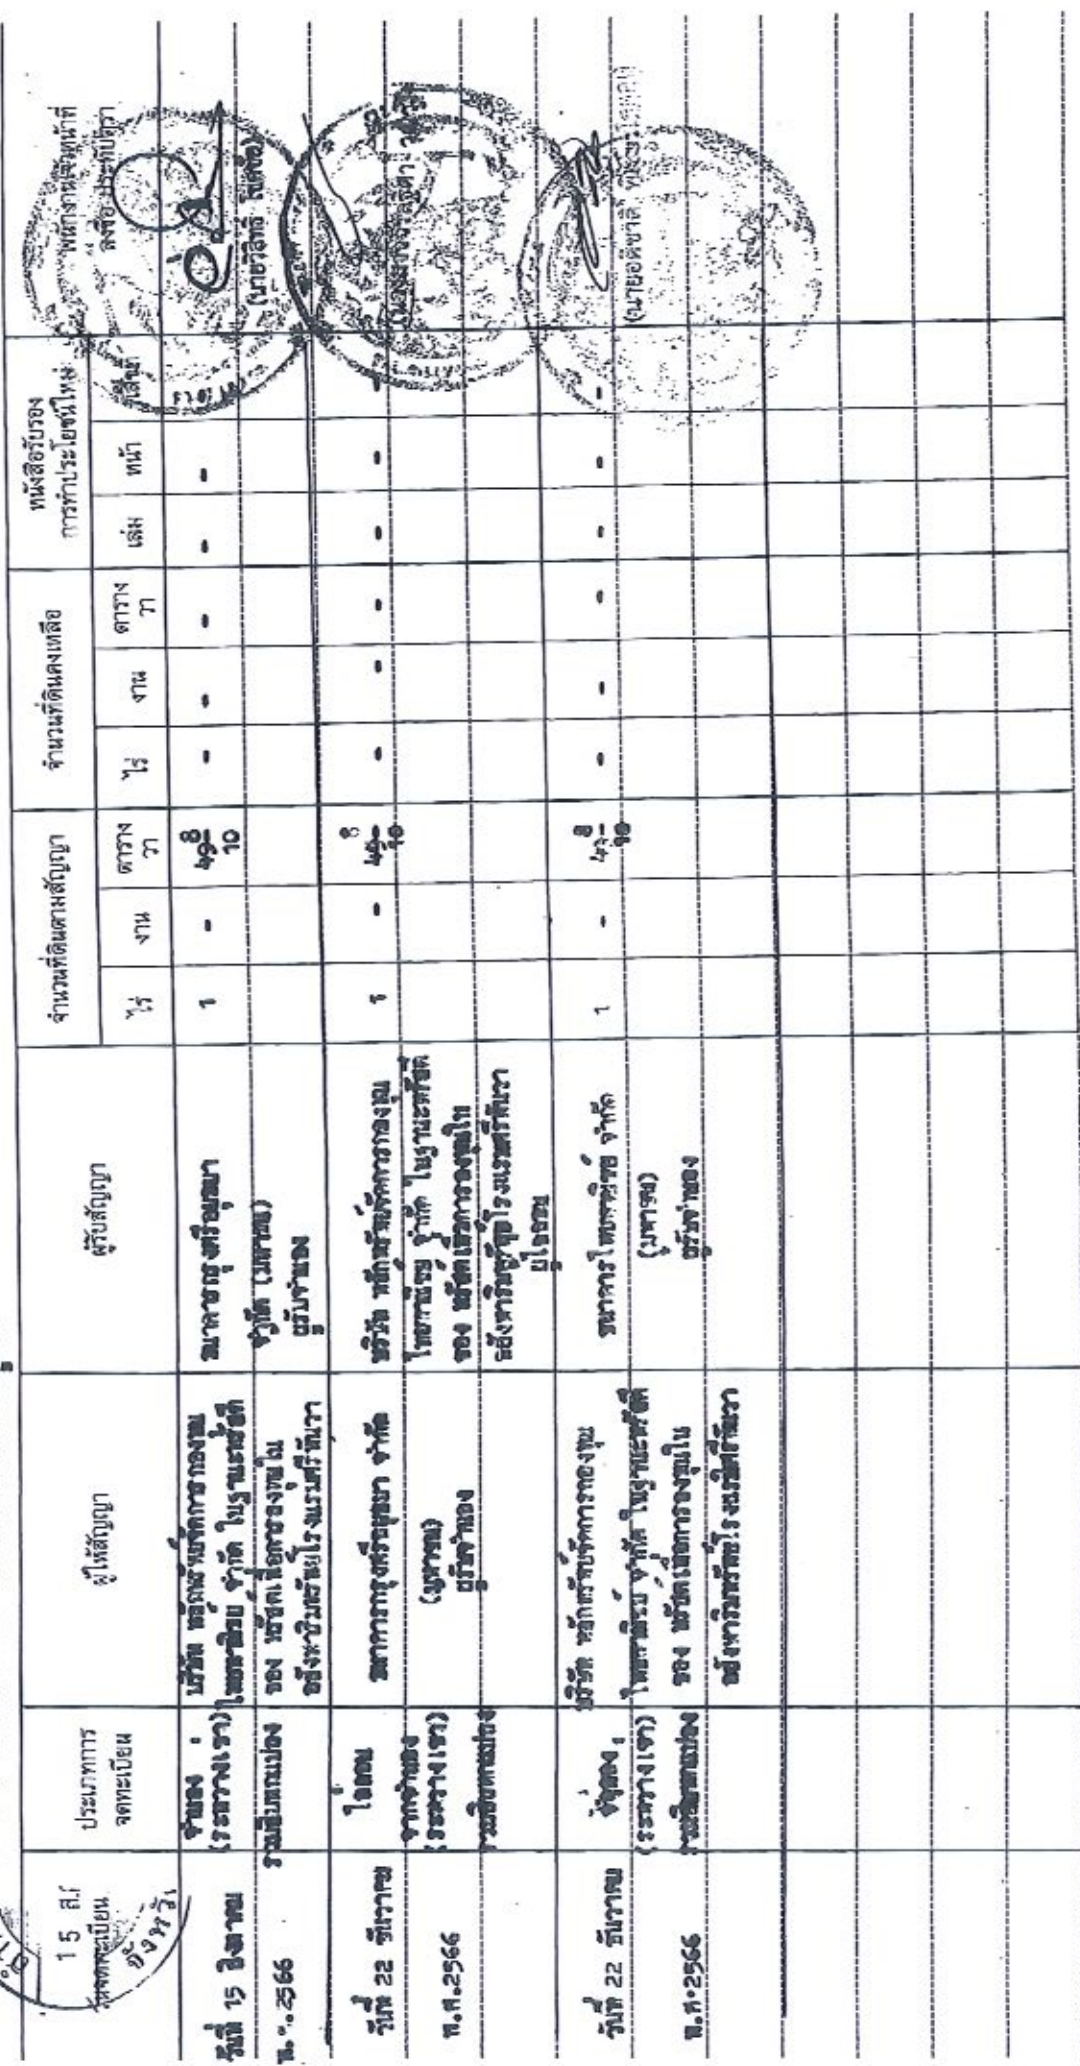 จดทะเบียน
15 ส.
ประเภทการ
จดทะเบียน
ผู้ให้สัญญา
ผู้รับสัญญา
จำนวนที่ดินตามสัญญา
ไร่ งาน ตาราง
วา
จำนวนที่ดินคงเหลือ
ไร่ งาน ตาราง
วา
หนังสือรับรอง
การทำประโยชน์ใหม่
เล่ม หน้า เลขที่
พนักงานเจ้าหน้าที่
ลงชื่อ ประทับตรา
วันที่ 15 สิงหาคม
2566
จำนอง
(ระหว่างเช่า)
บริษัท หลักทรัพย์จัดการกองทุน
ไทยพาณิชย์ จำกัด ในฐานะทรัสตี
ของ ทรัสต์เพื่อการลงทุนใน
อสังหาริมทรัพย์โรงแรมศรีพันวา
ธนาคารกรุงศรีอยุธยา
จำกัด (มหาชน)
ผู้รับจำนอง
1 - 49 8/10 - - - - - -
วันที่ 22 ธันวาคม
พ.ศ.2566
ไถ่ถอน
จากจำนอง
(ระหว่างเช่า)
ธนาคารกรุงศรีอยุธยา จำกัด
(มหาชน)
ผู้รับจำนอง
บริษัท หลักทรัพย์จัดการกองทุน
ไทยพาณิชย์ จำกัด ในฐานะทรัสตี
ของ ทรัสต์เพื่อการลงทุนใน
อสังหาริมทรัพย์โรงแรมศรีพันวา
ผู้ไถ่ถอน
1 - 8/10 - - - - - -
วันที่ 22 ธันวาคม
พ.ศ.2566
จำนอง
(ระหว่างเช่า)
บริษัท หลักทรัพย์จัดการกองทุน
ไทยพาณิชย์ จำกัด ในฐานะทรัสตี
ของ ทรัสต์เพื่อการลงทุนใน
อสังหาริมทรัพย์โรงแรมศรีพันวา
ธนาคารไทยพาณิชย์ จำกัด
(มหาชน)
ผู้รับจำนอง
1 - 8/10 - - - - - -